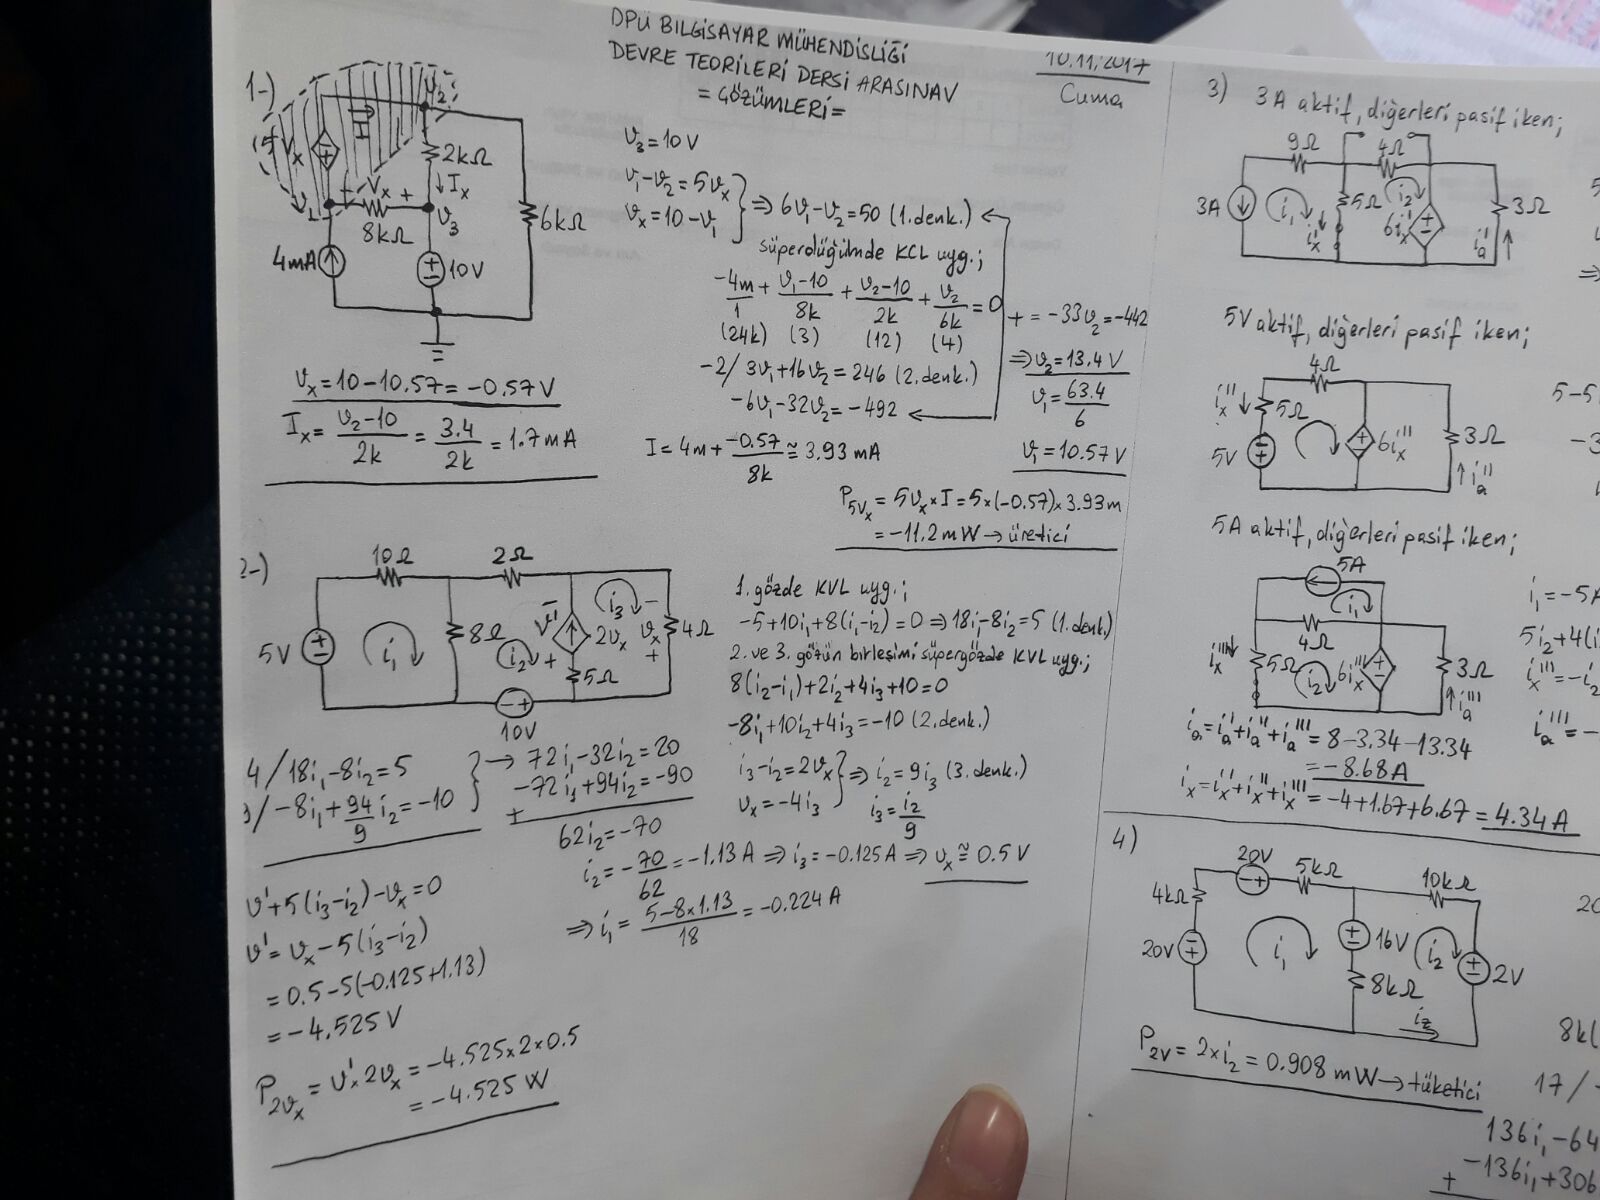 DPÜ BİLGİSAYAR MÜHENDİSLİĞİ
DEVRE TEORİLERİ DERSİ ARASINAV
= ÇÖZÜMLERİ =
10.11.2017
Cuma
1-)
V₂
I
5Vₓ
2kΩ
Iₓ
- Vₓ +
V₁
V₃
8kΩ
6kΩ
4mA
10V
V₃ = 10V
V₁-V₂ = 5Vₓ
Vₓ = 10-V₁
⇒ 6V₁-V₂ = 50 (1.denk.)
süperdüğümde KCL uyg.;
-4m/1 + (V₁-10)/8k + (V₂-10)/2k + V₂/6k = 0
(24k) (3) (12) (4)
-2/ 3V₁+16V₂ = 246 (2.denk.)
-6V₁-32V₂ = -492
+ = -33V₂ = -442
⇒ V₂ = 13.4 V
V₁ = 63.4/6
V₁ = 10.57 V
Vₓ = 10-10.57 = -0.57 V
Iₓ = (V₂-10)/2k = 3.4/2k = 1.7mA
I = 4m + (-0.57)/8k ≅ 3.93 mA
P₅ᵥₓ = 5Vₓ × I = 5×(-0.57)×3.93m
= -11.2 mW → üretici
2-)
10Ω
2Ω
5V
i₁
8Ω
i₂
V'
-
+
2Vₓ
i₃
-
Vₓ
+
4Ω
5Ω
- +
10V
1. gözde KVL uyg.;
-5+10i₁+8(i₁-i₂) = 0 ⇒ 18i₁-8i₂ = 5 (1.denk.)
2. ve 3. gözün birleşimi süpergözde KVL uyg.;
8(i₂-i₁)+2i₂+4i₃+10 = 0
-8i₁+10i₂+4i₃ = -10 (2.denk.)
i₃-i₂ = 2Vₓ
Vₓ = -4i₃
⇒ i₂ = 9i₃ (3.denk.)
i₃ = i₂/9
4/ 18i₁-8i₂ = 5
/ -8i₁ + 94/9 i₂ = -10
→ 72i₁-32i₂ = 20
-72i₁+94i₂ = -90
+
62i₂ = -70
i₂ = -70/62 = -1.13 A ⇒ i₃ = -0.125 A ⇒ Vₓ ≅ 0.5 V
⇒ i₁ = (5-8×1.13)/18 = -0.224 A
V'+5(i₃-i₂)-Vₓ = 0
V' = Vₓ-5(i₃-i₂)
= 0.5-5(-0.125+1.13)
= -4.525 V
P₂ᵥₓ = V' × 2Vₓ = -4.525×2×0.5
= -4.525 W
3)
3A aktif, diğerleri pasif iken;
9Ω
4Ω
3A
i₁
iₓ'
5Ω
i₂
6iₓ'
iₐ'
3Ω
5V aktif, diğerleri pasif iken;
4Ω
iₓ''
5Ω
5V
6iₓ''
3Ω
iₐ''
5-5
-3
5A aktif, diğerleri pasif iken;
5A
i₁
4Ω
iₓ'''
5Ω
i₂
6iₓ'''
3Ω
iₐ'''
i₁ = -5A
5i₂+4(i
iₓ''' = -i₂
iₐ''' = -
iₐ = iₐ'+iₐ''+iₐ''' = 8-3.34-13.34
= -8.68A
iₓ = iₓ'+iₓ''+iₓ''' = -4+1.67+6.67 = 4.34 A
4)
20V
- +
5kΩ
10kΩ
4kΩ
20V
i₁
16V
i₂
2V
8kΩ
i₂
P₂ᵥ = 2×i₂ = 0.908 mW → tüketici
20
8k(
17/-
136i₁-64
-136i₁+306
+